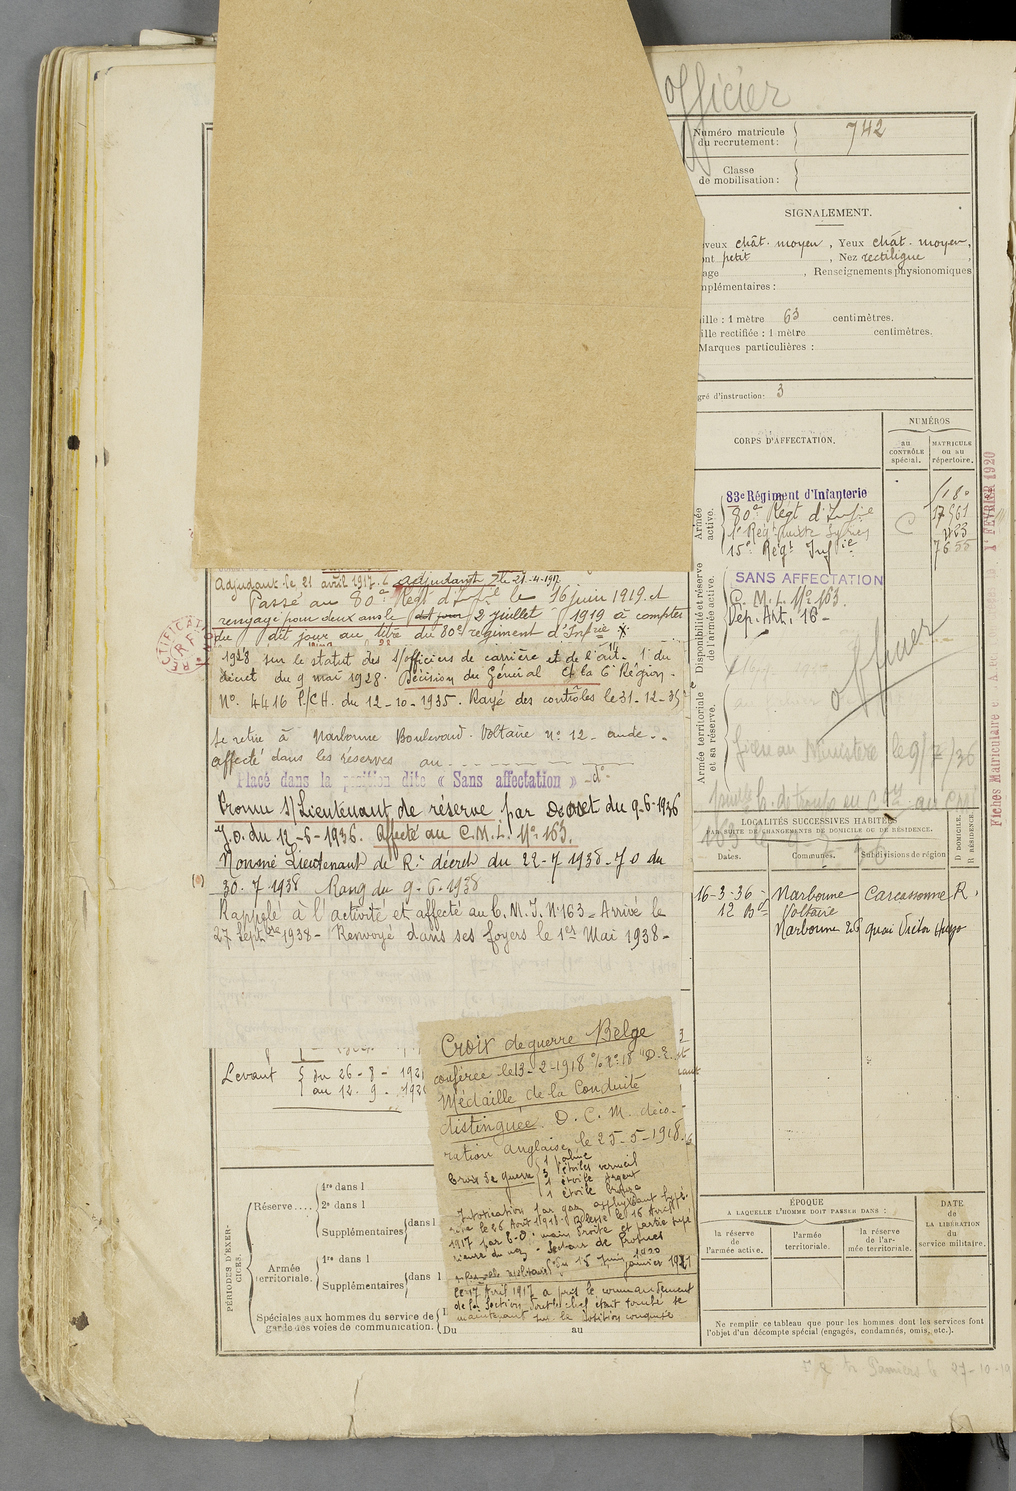 Officier
Numéro matricule
du recrutement :
742
Classe
de mobilisation :
SIGNALEMENT.
veux chât. moyen, Yeux chât. moyen,
nt petit, Nez rectiligne
age , Renseignements physionomiques
mplémentaires :
ille : 1 mètre 63 centimètres.
ille rectifiée : 1 mètre centimètres.
Marques particulières :
gré d'instruction : 3
CORPS D'AFFECTATION.
NUMÉROS
au
CONTRÔLE
spécial.
MATRICULE
ou au
répertoire.
Armée
active.
83e Régiment d'Infanterie
80e Régt d'Infie
15e Régt Infie
C
Disponibilité et réserve
de l'armée active.
SANS AFFECTATION
C. M. I. No 163.
Dép. Art. 16
officier
Armée territoriale
et sa réserve.
au Ministère le 9/7/36
1er FÉVRIER 1920
Fiches Matriculaire
LOCALITÉS SUCCESSIVES HABITÉES
PAR SUITE DE CHANGEMENTS DE DOMICILE OU DE RÉSIDENCE.
Dates.
Communes.
Subdivisions de région
D DOMICILE.
R RÉSIDENCE.
16-3-36 - Narbonne Carcassonne R.
12 Bd Voltaire
Narbonne 26 quai Victor Hugo
ÉPOQUE
A LAQUELLE L'HOMME DOIT PASSER DANS :
la réserve
de
l'armée active.
l'armée
territoriale.
la réserve
de l'ar-
mée territoriale.
DATE
de
LA LIBÉRATION
du
service militaire.
Ne remplir ce tableau que pour les hommes dont les services font
l'objet d'un décompte spécial (engagés, condamnés, omis, etc.).
Adjudant le 21 avril 1917. adjudant le 21-4-1917
Passé au 80e Régt d'Infie le 16 juin 1919. et
rengagé pour deux ans le dit jour 2 juillet 1919 à compter
du dit jour au titre du 80e régiment d'Infie
1928 sur le statut des s/officiers de carrière et de l'art. 1er du
décret du 9 mai 1928. Décision du Général Ct la 6e Région
No 4416 P/CH. du 12-10-1935. Rayé des contrôles le 31-12-35
Se retire à Narbonne Boulevard Voltaire no 12 - aude -
affecté dans les réserves au
Placé dans la position dite « Sans affectation » - do -
Promu s/Lieutenant de réserve par Décret du 9-6-1936
J.O. du 12-6-1936. Affecté au C.M.I. No 163.
Nommé Lieutenant de Re décret du 22-7 1938 - J O du
30. 7 1938 Rang du 9-6-1938
Rappelé à l'activité et affecté au C.M.I. No 163 - Arrivé le
27 Septbre 1938 - Renvoyé dans ses foyers le 1er Mai 1938 -
Levant
du 26 - 8 - 1921
au 12. 9 - 192
Croix de guerre Belge
conférée le 13-2-1918 No 18 "D.E.
Médaille de la Conduite
distinguée. D. C. M. déco-
ration anglaise le 25-5-1918.
Croix de guerre
1 palme
3 étoiles vermeil
1 étoile argent
1 étoile bronze
Intoxication par gaz
le 26 Août 1918. Blessé le 16 Avril
1917 par E.O. main droite et partie supé-
rieure du nez. Secteur de Prosnes
du 15 Juin 1920
janvier 1921
le 17 Avril 1917 a pris le commandement
de la section dont le chef était tombé se
maintenant sur la position conquise
PÉRIODES D'EXER-
CICES.
Réserve....
1re dans l
2e dans l
Supplémentaires
dans l
Armée
territoriale.
1re dans l
Supplémentaires
dans l
Spéciales aux hommes du service de
garde des voies de communication.
Du au